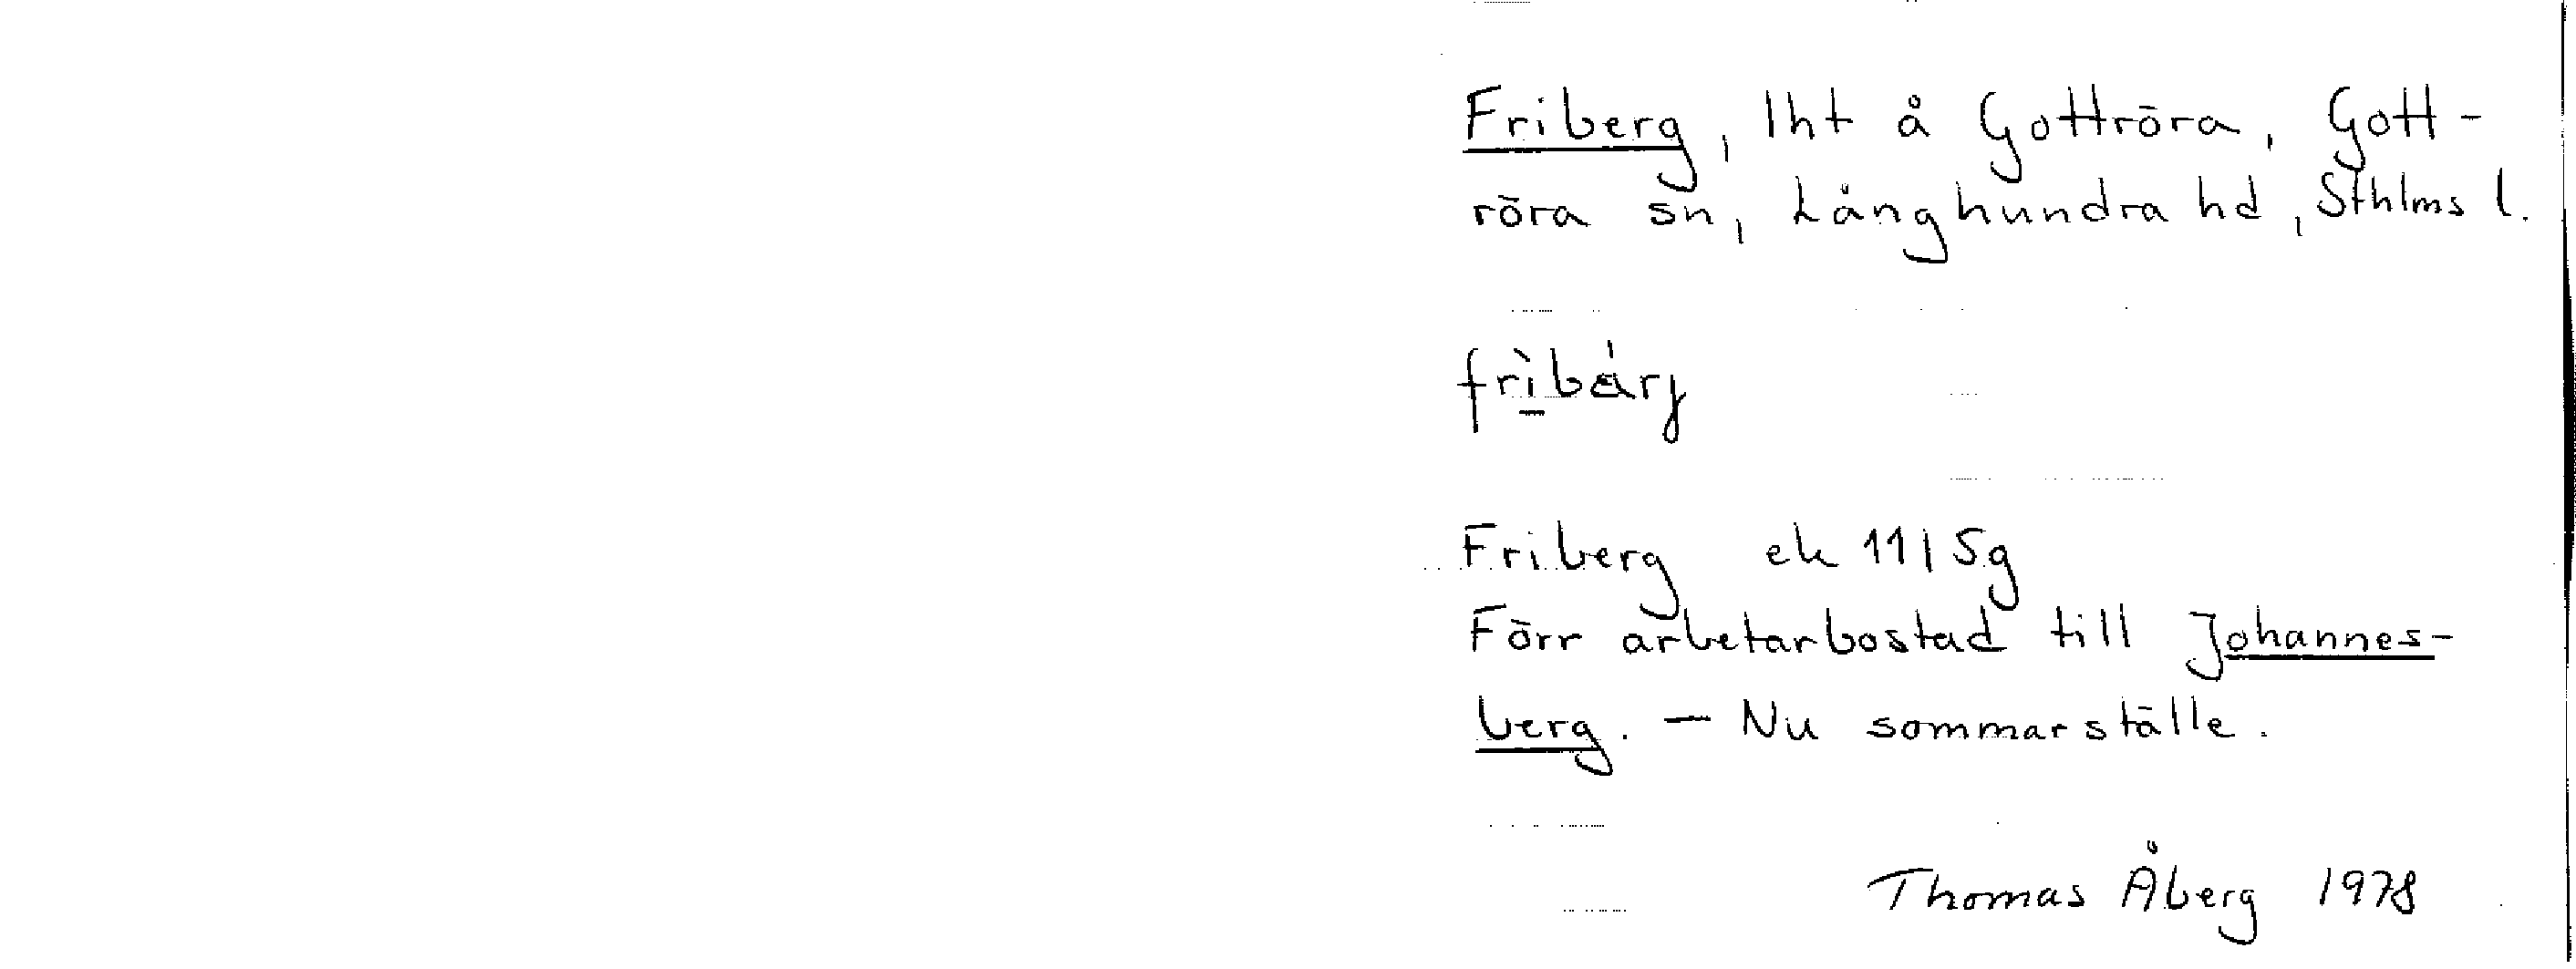 Friberg, lht å Gottröra, Gott-
röra sn, Långhundra hd, Sthlms l.
frìbárj
Friberg ek 11I5g
Förr arbetarbostad till Johannes-
berg. — Nu sommarställe.
Thomas Åberg 1978